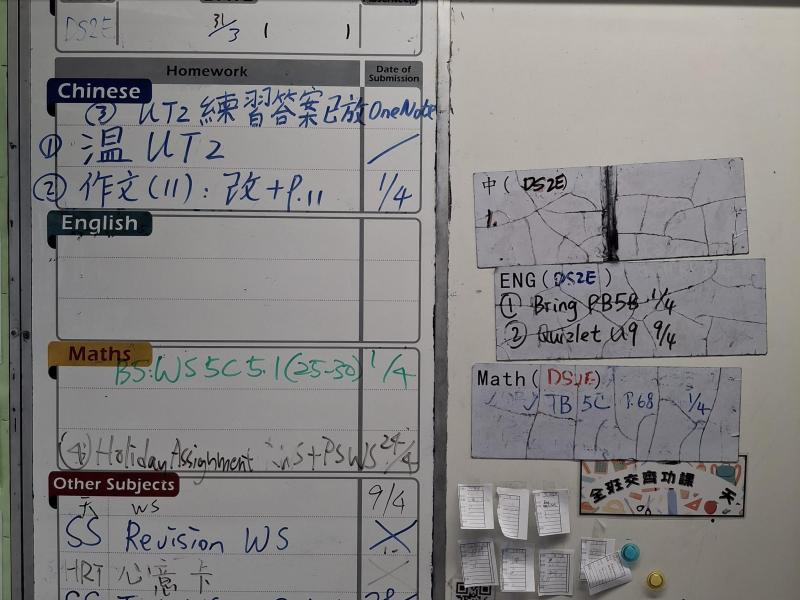 DS2E 31/3 1 1
Homework Date of Submission
Chinese
③ UT2 練習答案已放OneNote
① 温 UT2
② 作文(11): 改+P.11 1/4
English
Maths
B5: WS 5C 5.1(25-30) 1/4
Holiday Assignment + PS WS 24/4
Other Subjects
WS 9/4
SS Revision WS
HRT 心意卡
中( DS2E)
1.
ENG(DS2E)
① Bring PB5B 1/4
② Quizlet U9 9/4
Math( DS2E)
TB 5C P.68 1/4
全班交齊功課 天